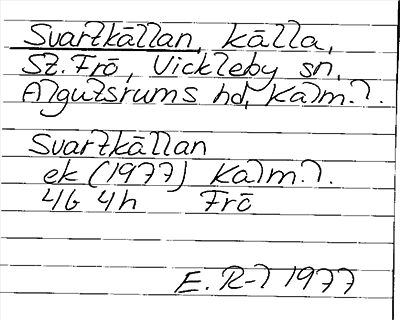 Svartkällan, källa,
St. Frö, Vickleby sn,
Algutsrums hd, Kalm. l.
Svartkällan
ek (1977) Kalm. l.
4G 4h Frö
E. R-l 1977